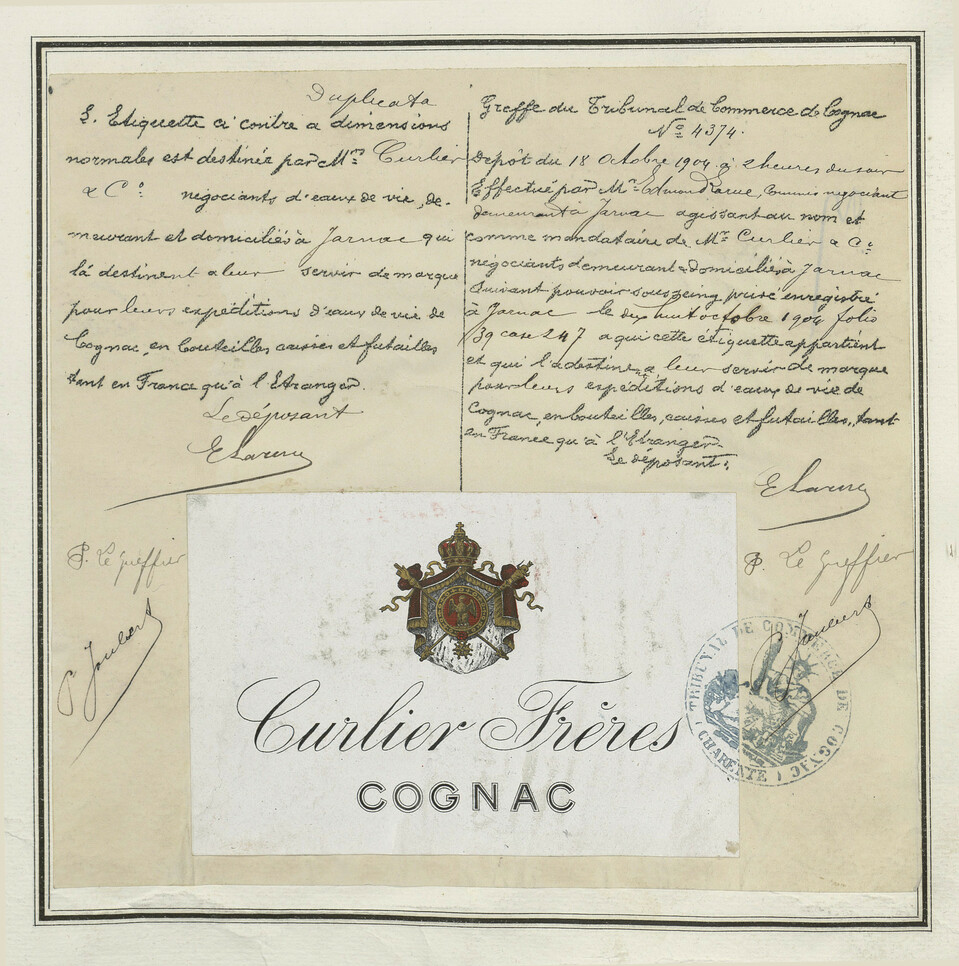 Duplicata
L'Etiquette ci contre a dimensions
normales est destinée par Mrs Curlier
& Co négociants d'eaux de vie, de-
meurant et domiciliés à Jarnac qui
la destinent a leur servir de marque
pour leurs expéditions d'eaux de vie de
Cognac, en bouteilles caisses et futailles
tant en France qu'à l'Etranger.
Le déposant
P. Le Greffier
P Joubert
Greffe du Tribunal de Commerce de Cognac
No 4374.
Dépôt du 18 Octobre 1904 à 2 heures du soir
Effectué par Mr Edmond négociant
demeurant à Jarnac agissant au nom et
comme mandataire de Mrs Curlier & Co
négociants demeurant & domiciliés à Jarnac
Suivant pouvoir sous seing privé enregistré
à Jarnac le dix huit octobre 1904 folio
39 case 247 a qui cette étiquette appartient
et qui l'a destinent a leur servir de marque
pour leurs expéditions d'eaux de vie de
Cognac, en bouteilles, caisses et futailles, tant
en France qu'à l'Etranger
Le déposant.
P. Le Greffier
P Joubert
TRIBUNAL DE COMMERCE DE COGNAC
(CHARENTE)
Curlier Frères
COGNAC